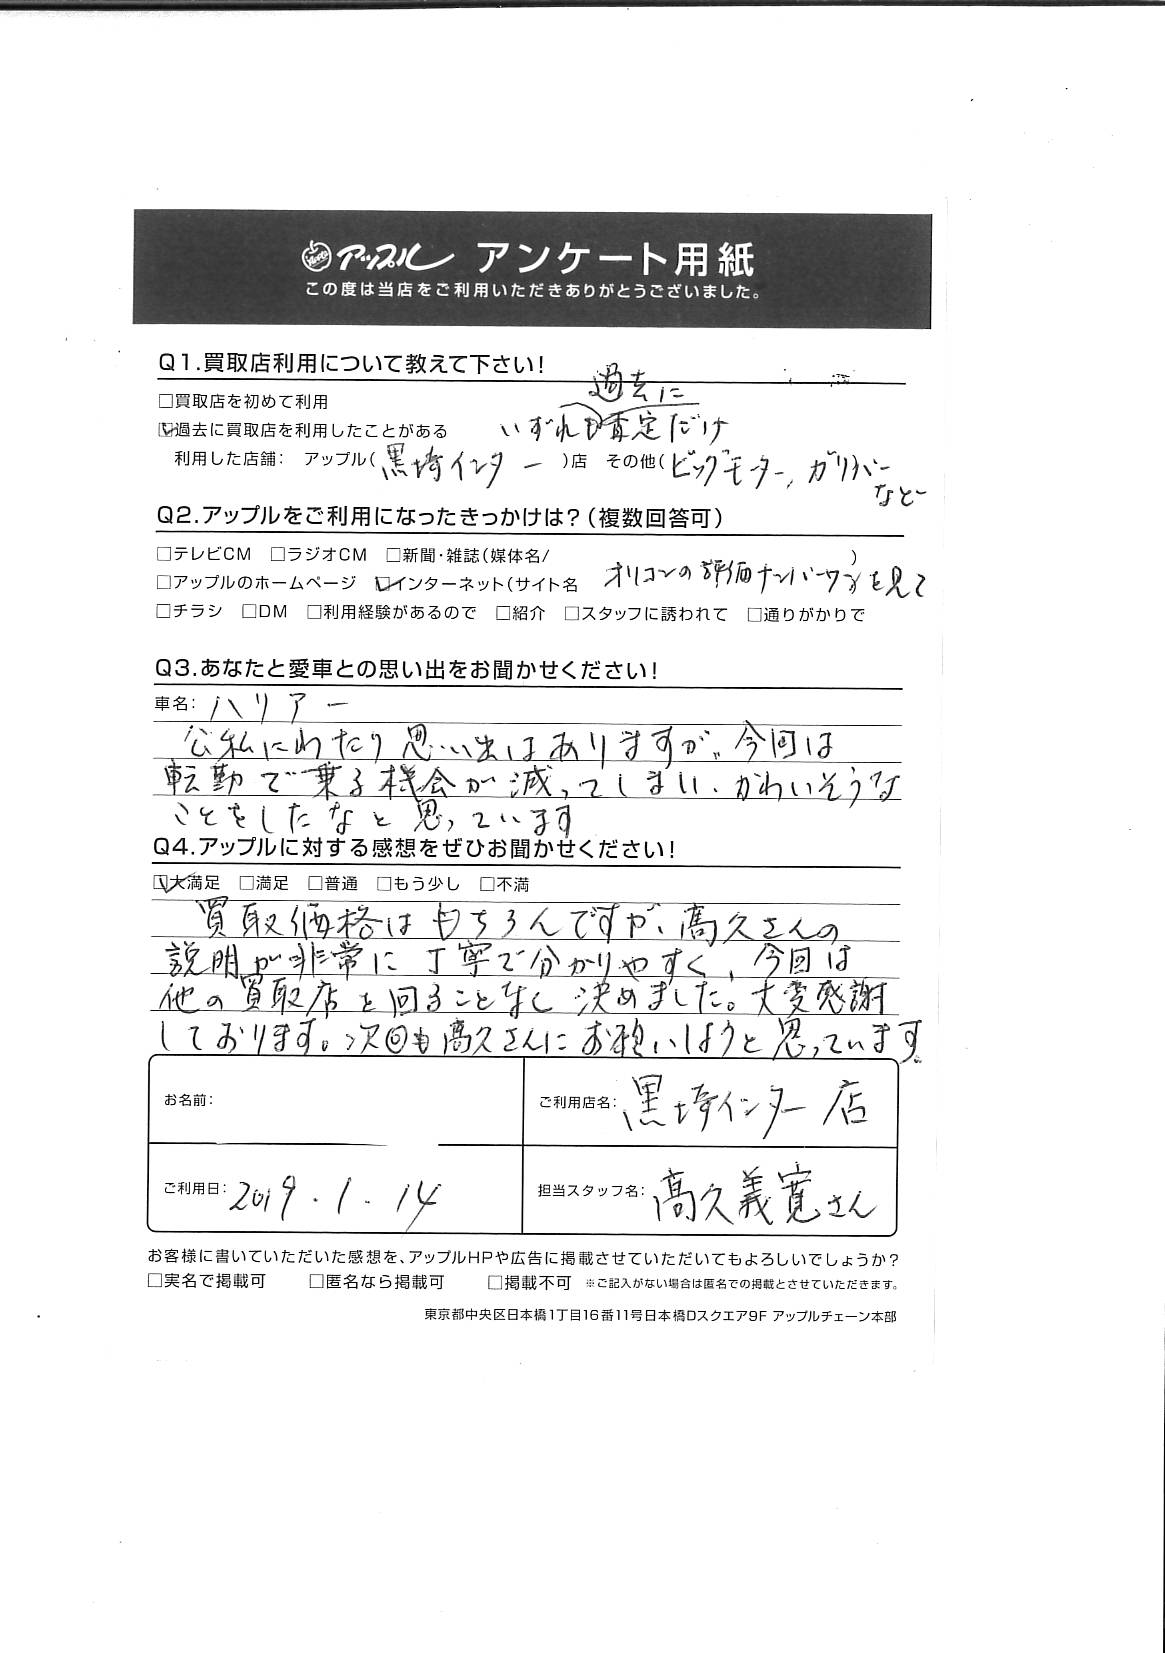 アップル アンケート用紙
この度は当店をご利用いただきありがとうございました。
Q1.買取店利用について教えて下さい!
□買取店を初めて利用
過去に
☑過去に買取店を利用したことがある いずれも査定だけ
利用した店舗: アップル(黒埼インター)店 その他(ビッグモーター、ガリバー
など
Q2.アップルをご利用になったきっかけは?(複数回答可)
□テレビCM □ラジオCM □新聞・雑誌(媒体名/ )
□アップルのホームページ ☑インターネット(サイト名 オリコンの評価ナンバーワンを見て
□チラシ □DM □利用経験があるので □紹介 □スタッフに誘われて □通りがかりで
Q3.あなたと愛車との思い出をお聞かせください!
車名: ハリアー
公私にわたり思い出はありますが、今回は
転勤で乗る機会が減ってしまい、かわいそうな
ことをしたなと思っています
Q4.アップルに対する感想をぜひお聞かせください!
☑大満足 □満足 □普通 □もう少し □不満
買取価格はもちろんですが、髙久さんの
説明が非常に丁寧で分かりやすく、今回は
他の買取店を回ることなく決めました。大変感謝
しております。次回も髙久さんにお願いしようと思っています。
お名前:
ご利用店名: 黒埼インター店
ご利用日: 2019.1.14
担当スタッフ名: 髙久義寛さん
お客様に書いていただいた感想を、アップルHPや広告に掲載させていただいてもよろしいでしょうか?
□実名で掲載可 □匿名なら掲載可 □掲載不可 ※ご記入がない場合は匿名での掲載とさせていただきます。
東京都中央区日本橋1丁目16番11号日本橋Dスクエア9F アップルチェーン本部